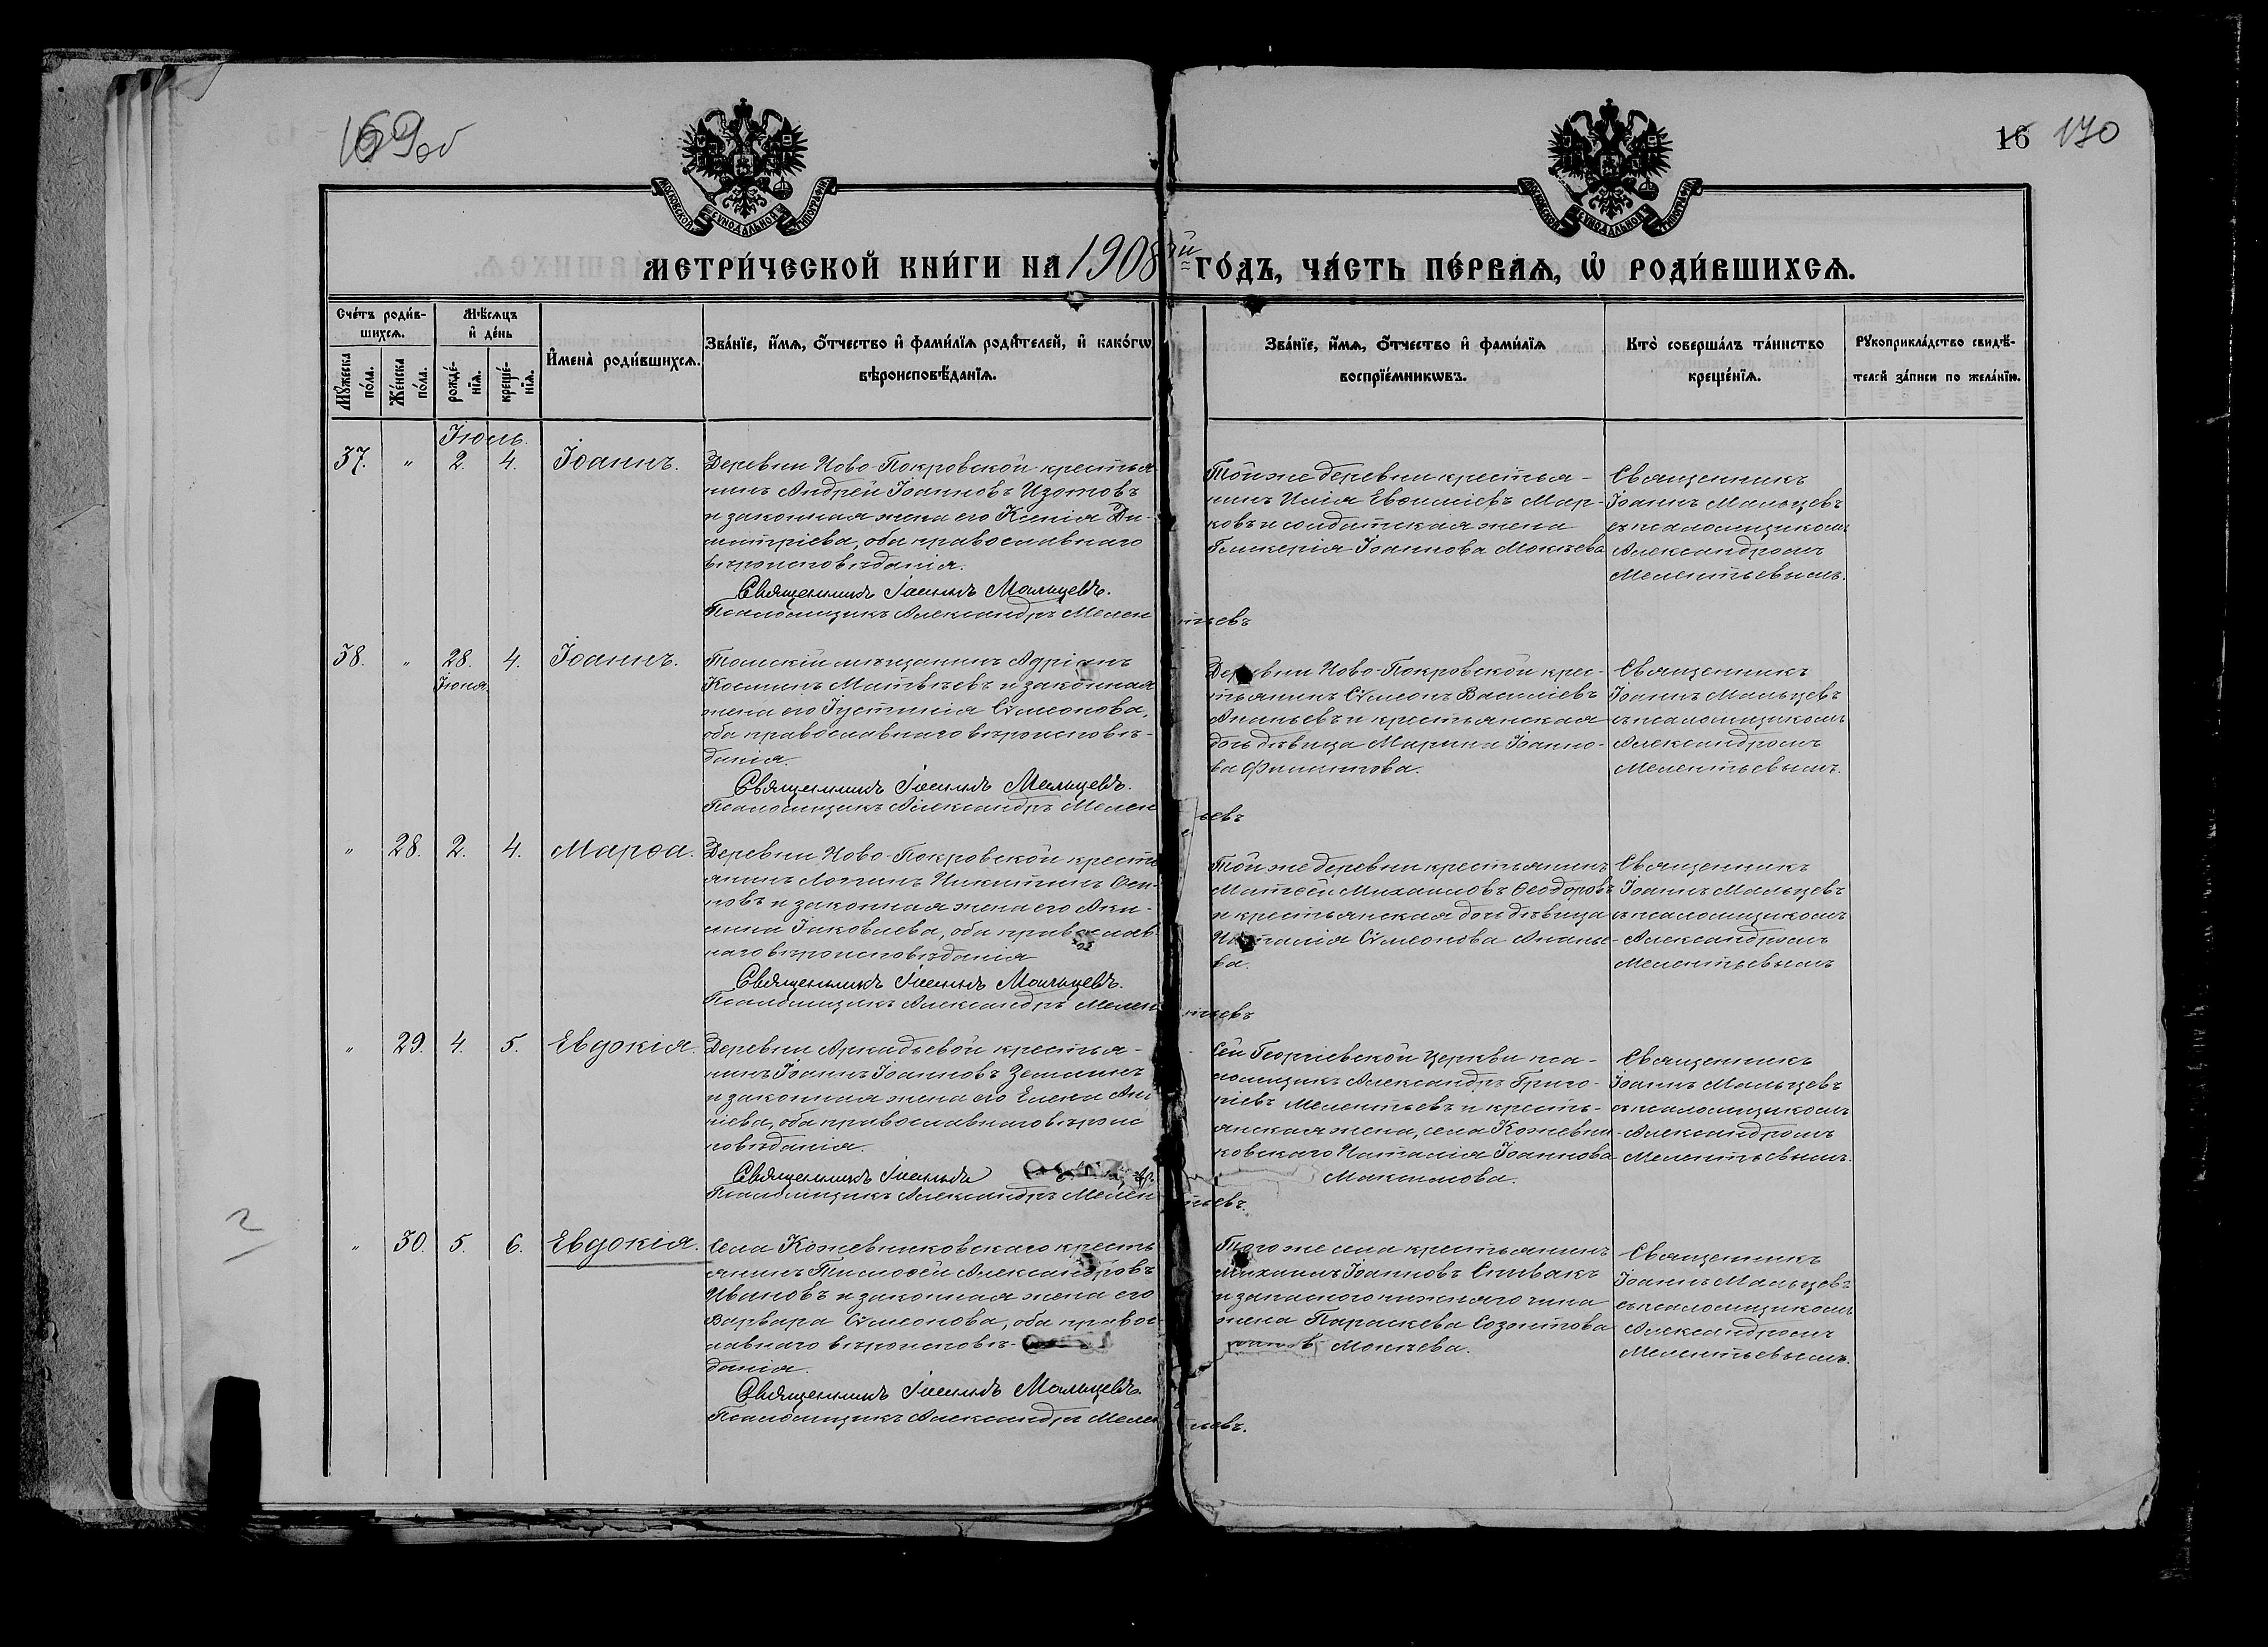 169об
16 170
МОСКОВСКОЙ СѴНОДАЛЬНОЙ ТИПОГРАФІИ
МОСКОВСКОЙ СѴНОДАЛЬНОЙ ТИПОГРАФІИ
МЕТРИ́ЧЕСКОЙ КНИ́ГИ НА 1908ой ГО́ДЪ, ЧА́СТЬ ПЕ́РВАѦ, Ѽ РОДИ́ВШИХСѦ.
Сче́тъ роди́в-
шихсѧ.
Мꙋ́жеска по́ла.
Же́нска по́ла.
Мѣ́сѧцъ и҆ де́нь
рожде́-
нїѧ.
креще́-
нїѧ.
И҆мена̀ роди́вшихсѧ.
Зва́нїе, и҆́мѧ, ѻ҆́тчество и҆ фами́лїѧ роди́телей, и҆ како́гѡ
вѣроисповѣ́данїѧ.
Зва́нїе, и҆́мѧ, ѻ҆́тчество и҆ фами́лїѧ
воспрїе́мникѡвъ.
Кто̀ соверша́лъ та́инство
креще́нїѧ.
Рꙋкоприкла́дство свидѣ́-
телей за́писи по жела́нїю.
Іюль.
37. " 2. 4. Іоаннъ.
Деревни Ново-Покровской крестья
нинъ Андрей Іоанновъ Изотовъ
и законная жена его Ксенія Ди-
митріева, оба православнаго
вѣроисповѣданія.
Священникъ Іоаннъ Мальцевъ.
Псаломщикъ Александръ Мелентьевъ
Той же деревни крестья-
нинъ Илія Евѳиміевъ Мар-
ковъ и солдатская жена
Гликерія Іоаннова Мокѣева
Священникъ
Іоаннъ Мальцевъ
съ псаломщикомъ
Александромъ
Мелентьевымъ.
38. " 28. 4. Іоаннъ.
Іюня.
Томскій мѣщанинъ Адріанъ
Косминъ Матвѣевъ и законная
жена его Іустинія Сѵмеонова,
оба православнаго вѣроисповѣ-
данія.
Священникъ Іоаннъ Мальцевъ.
Псаломщикъ Александръ Мелентьевъ
Деревни Ново-Покровской крес-
тьянинъ Сѵмеонъ Василіевъ
Ананьевъ и крестьянская
дочь дѣвица Марина Іоанно-
ва Филиппова.
Священникъ
Іоаннъ Мальцевъ
съ псаломщикомъ
Александромъ
Мелентьевымъ.
" 28. 2. 4. Марѳа.
Деревни Ново-Покровской крестья
янинъ Логинъ Никитинъ Оси-
повъ и законная жена его Аки-
лина Іаковлева, оба православ-
наго вѣроисповѣданія
Священникъ Іоаннъ Мальцевъ.
Псаломщикъ Александръ Мелентьевъ
Той же деревни крестьянинъ
Матѳей Михаиловъ Ѳеодоровъ
и крестьянская дочь дѣвица
Наталія Сѵмеонова Ананье-
ва.
Священникъ
Іоаннъ Мальцевъ
съ псаломщикомъ
Александромъ
Мелентьевымъ
" 29. 4. 5. Евдокія.
Деревни Аркадьевой крестья-
нинъ Іоаннъ Іоанновъ Землинъ
и законная жена его Елена
оба православнаго вѣроис
повѣданія.
Священникъ Іоаннъ
Псаломщикъ Александръ Мелентьевъ.
Сей Георгіевской церкви пса-
ломщикъ Александръ Григо-
ріевъ Мелентьевъ и кресть-
янская жена, села Кожевни-
ковскаго Наталія Іоаннова
Максимова.
Священникъ
Іоаннъ Мальцевъ
съ псаломщикомъ
Александромъ
Мелентьевымъ.
2
" 30. 5. 6. Евдокія.
Села Кожевниковскаго кресть
янинъ Тимоѳей Александровъ
Ивановъ и законная жена его
Варвара Сѵмеонова, оба правос-
лавнаго вѣроисповѣ-
данія.
Священникъ Іоаннъ Мальцевъ.
Псаломщикъ Александръ Мелентьевъ.
Того же села крестьянинъ
Михаилъ Іоанновъ Спивакъ
и запасного нижняго чина
жена Параскева Созонтова
Мокѣева.
Священникъ
Іоаннъ Мальцевъ
съ псаломщикомъ
Александромъ
Мелентьевымъ.